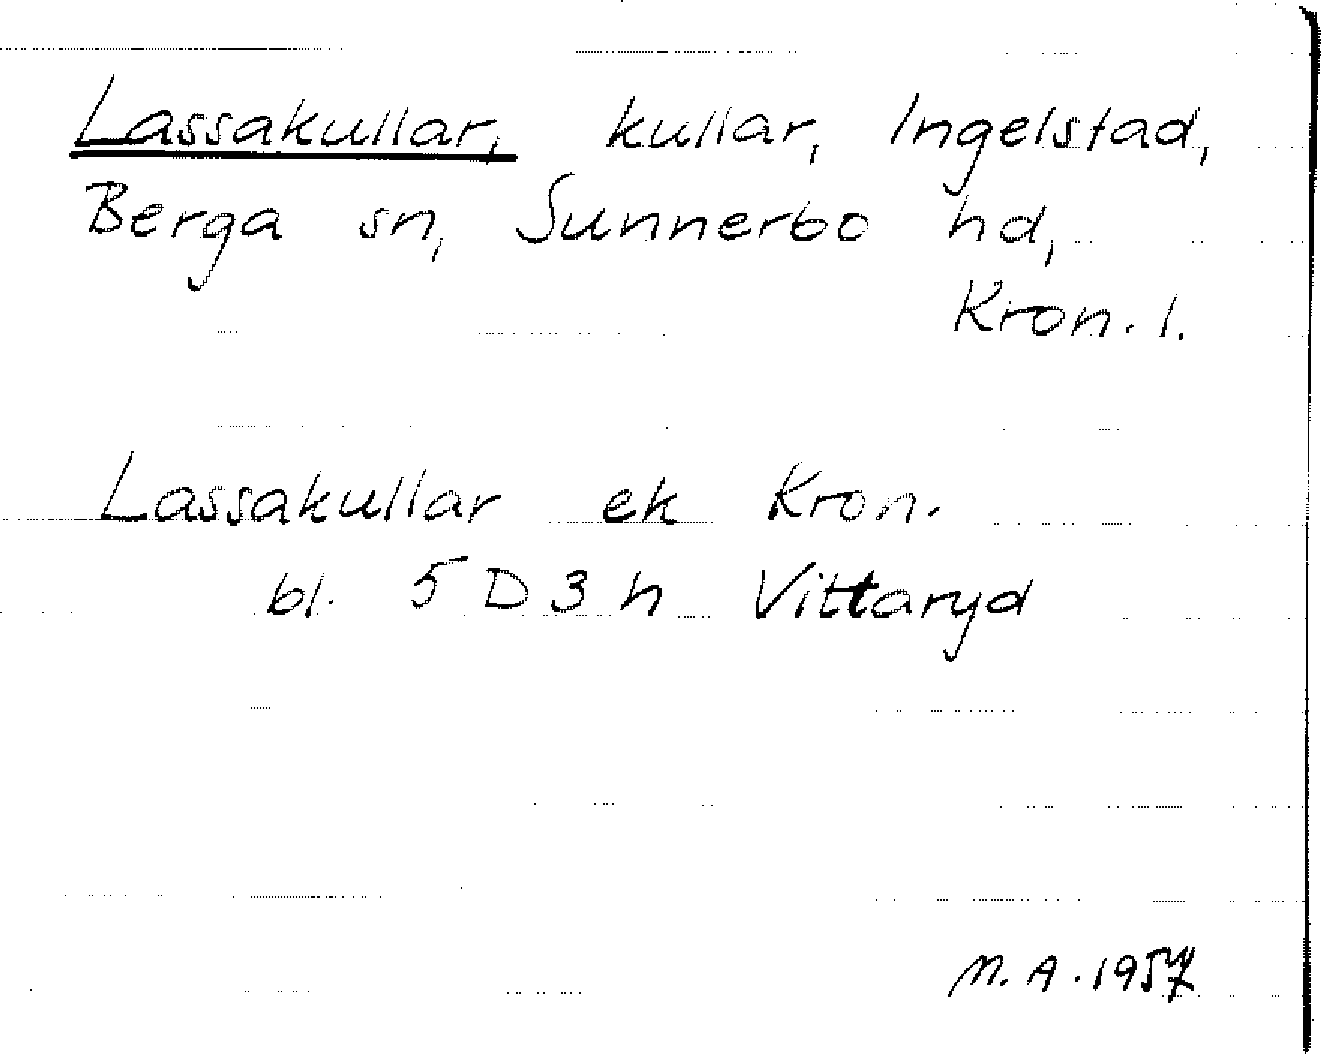 Lassakullar, kullar, Ingelstad,
Berga sn, Sunnerbo hd,
Kron. l.
Lassakullar ek Kron.
bl. 5 D 3 h Vittaryd
M. A. 1957